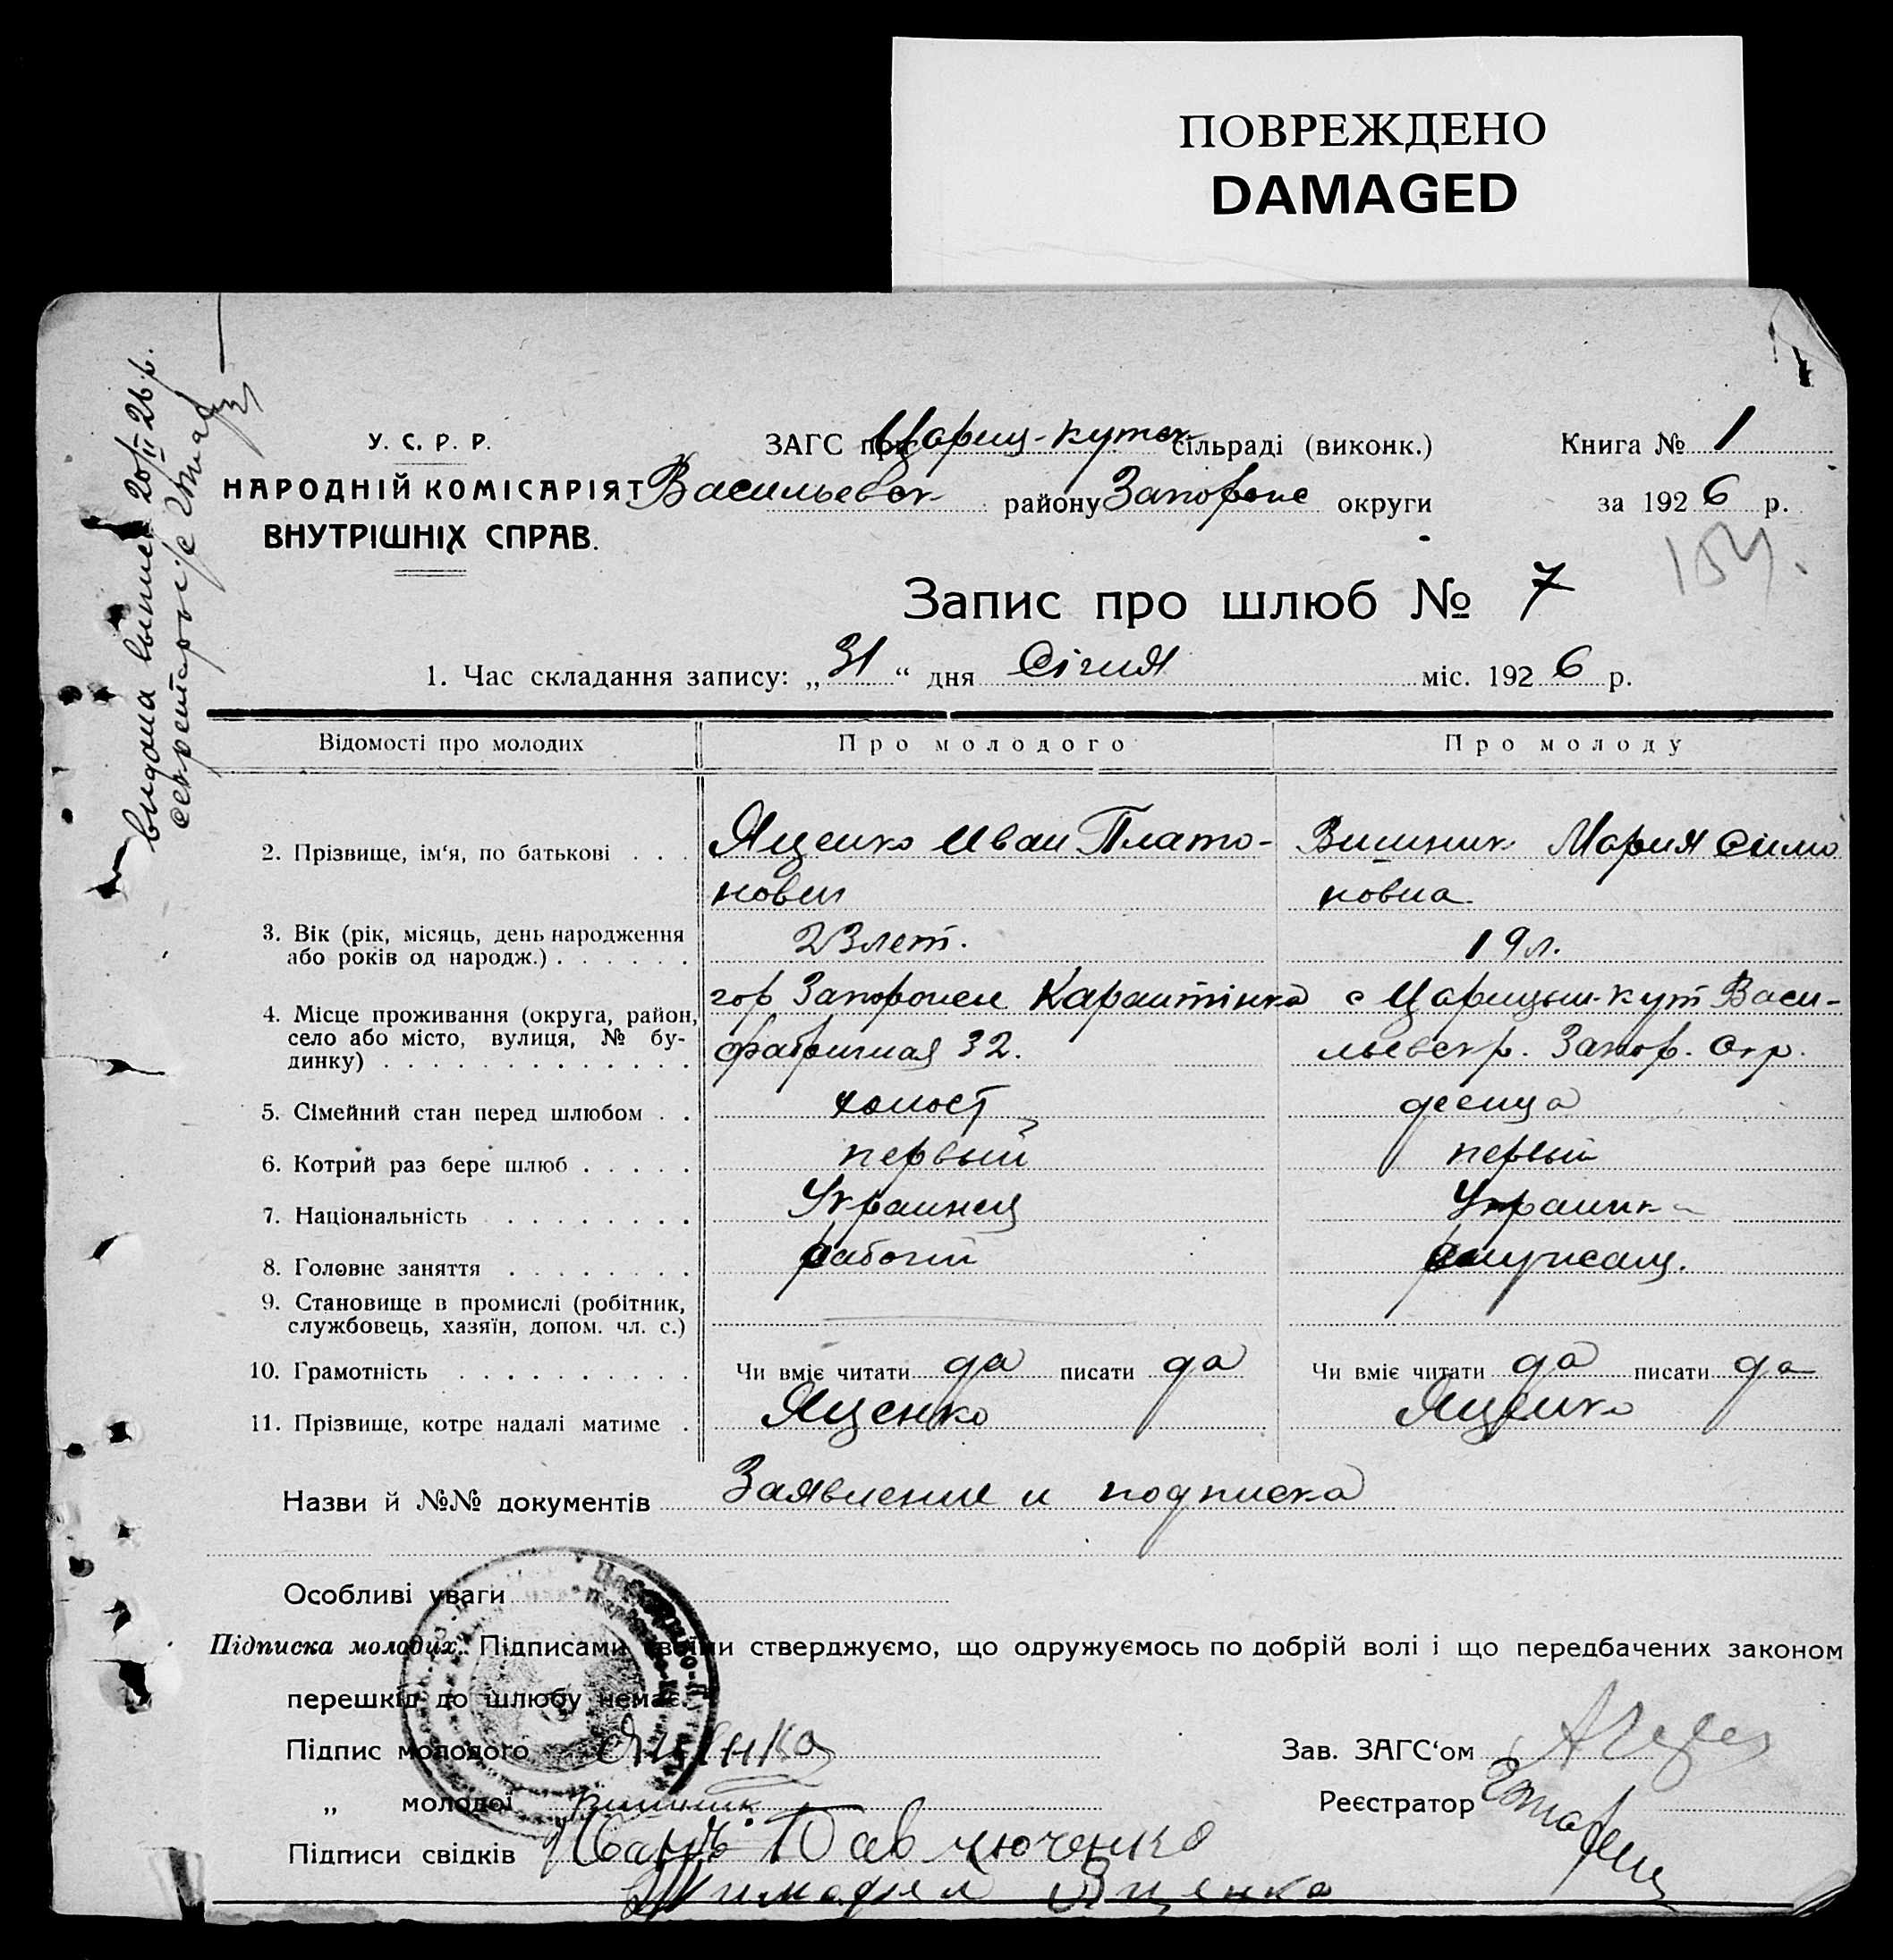 ПОВРЕЖДЕНО
DAMAGED
видана выпись 20/II 26 р.
секретарь с/с
У. С. Р. Р.
НАРОДНІЙ КОМІСАРІЯТ
ВНУТРІШНІХ СПРАВ.
ЗАГС при Цариц-кутск сільраді (виконк.)
Васильевск району Запорожс округи
Книга № 1
за 1926 р.
104.
Запис про шлюб № 7
1. Час складання запису: „31“ дня Січня міс. 1926 р.
Відомості про молодих Про молодого Про молоду
2. Прізвище, ім‘я, по батькові . . . Яценко Иван Плато- Вишник Мария Симо
нович новна
3. Вік (рік, місяць, день народження 23 лет. 19 л.
або років од народж.) . . . . . .
4. Місце проживання (округа, район, гор Запорожье Карантінка с Царицын-кут Васи-
село або місто, вулиця, № бу- фабричная 32. льевск р. Запор. Окр.
динку) . . . . . . . . . . . . .
5. Сімейний стан перед шлюбом . . холост девица
6. Котрий раз бере шлюб . . . . . первый первый
7. Національність . . . . . . . . Украинец Украинка
8. Головне заняття . . . . . . . . рабочий
9. Становище в промислі (робітник,
службовець, хазяїн, допом. чл. с.)
10. Грамотність . . . . . . . . . . Чи вміє читати да писати да Чи вміє читати да писати да
11. Прізвище, котре надалі матиме . Яценко Яценко
Назви й №№ документів Заявление и подписка
Особливі уваги
Підписка молодих. Підписами своїми стверджуємо, що одружуємось по добрій волі і що передбачених законом
перешкід до шлюбу немає.
Підпис молодого Яценко Зав. ЗАГС‘ом
„ молодої Вишник Реєстратор
Підписи свідків Иванъ Павлюченко
Тимофей Яценко